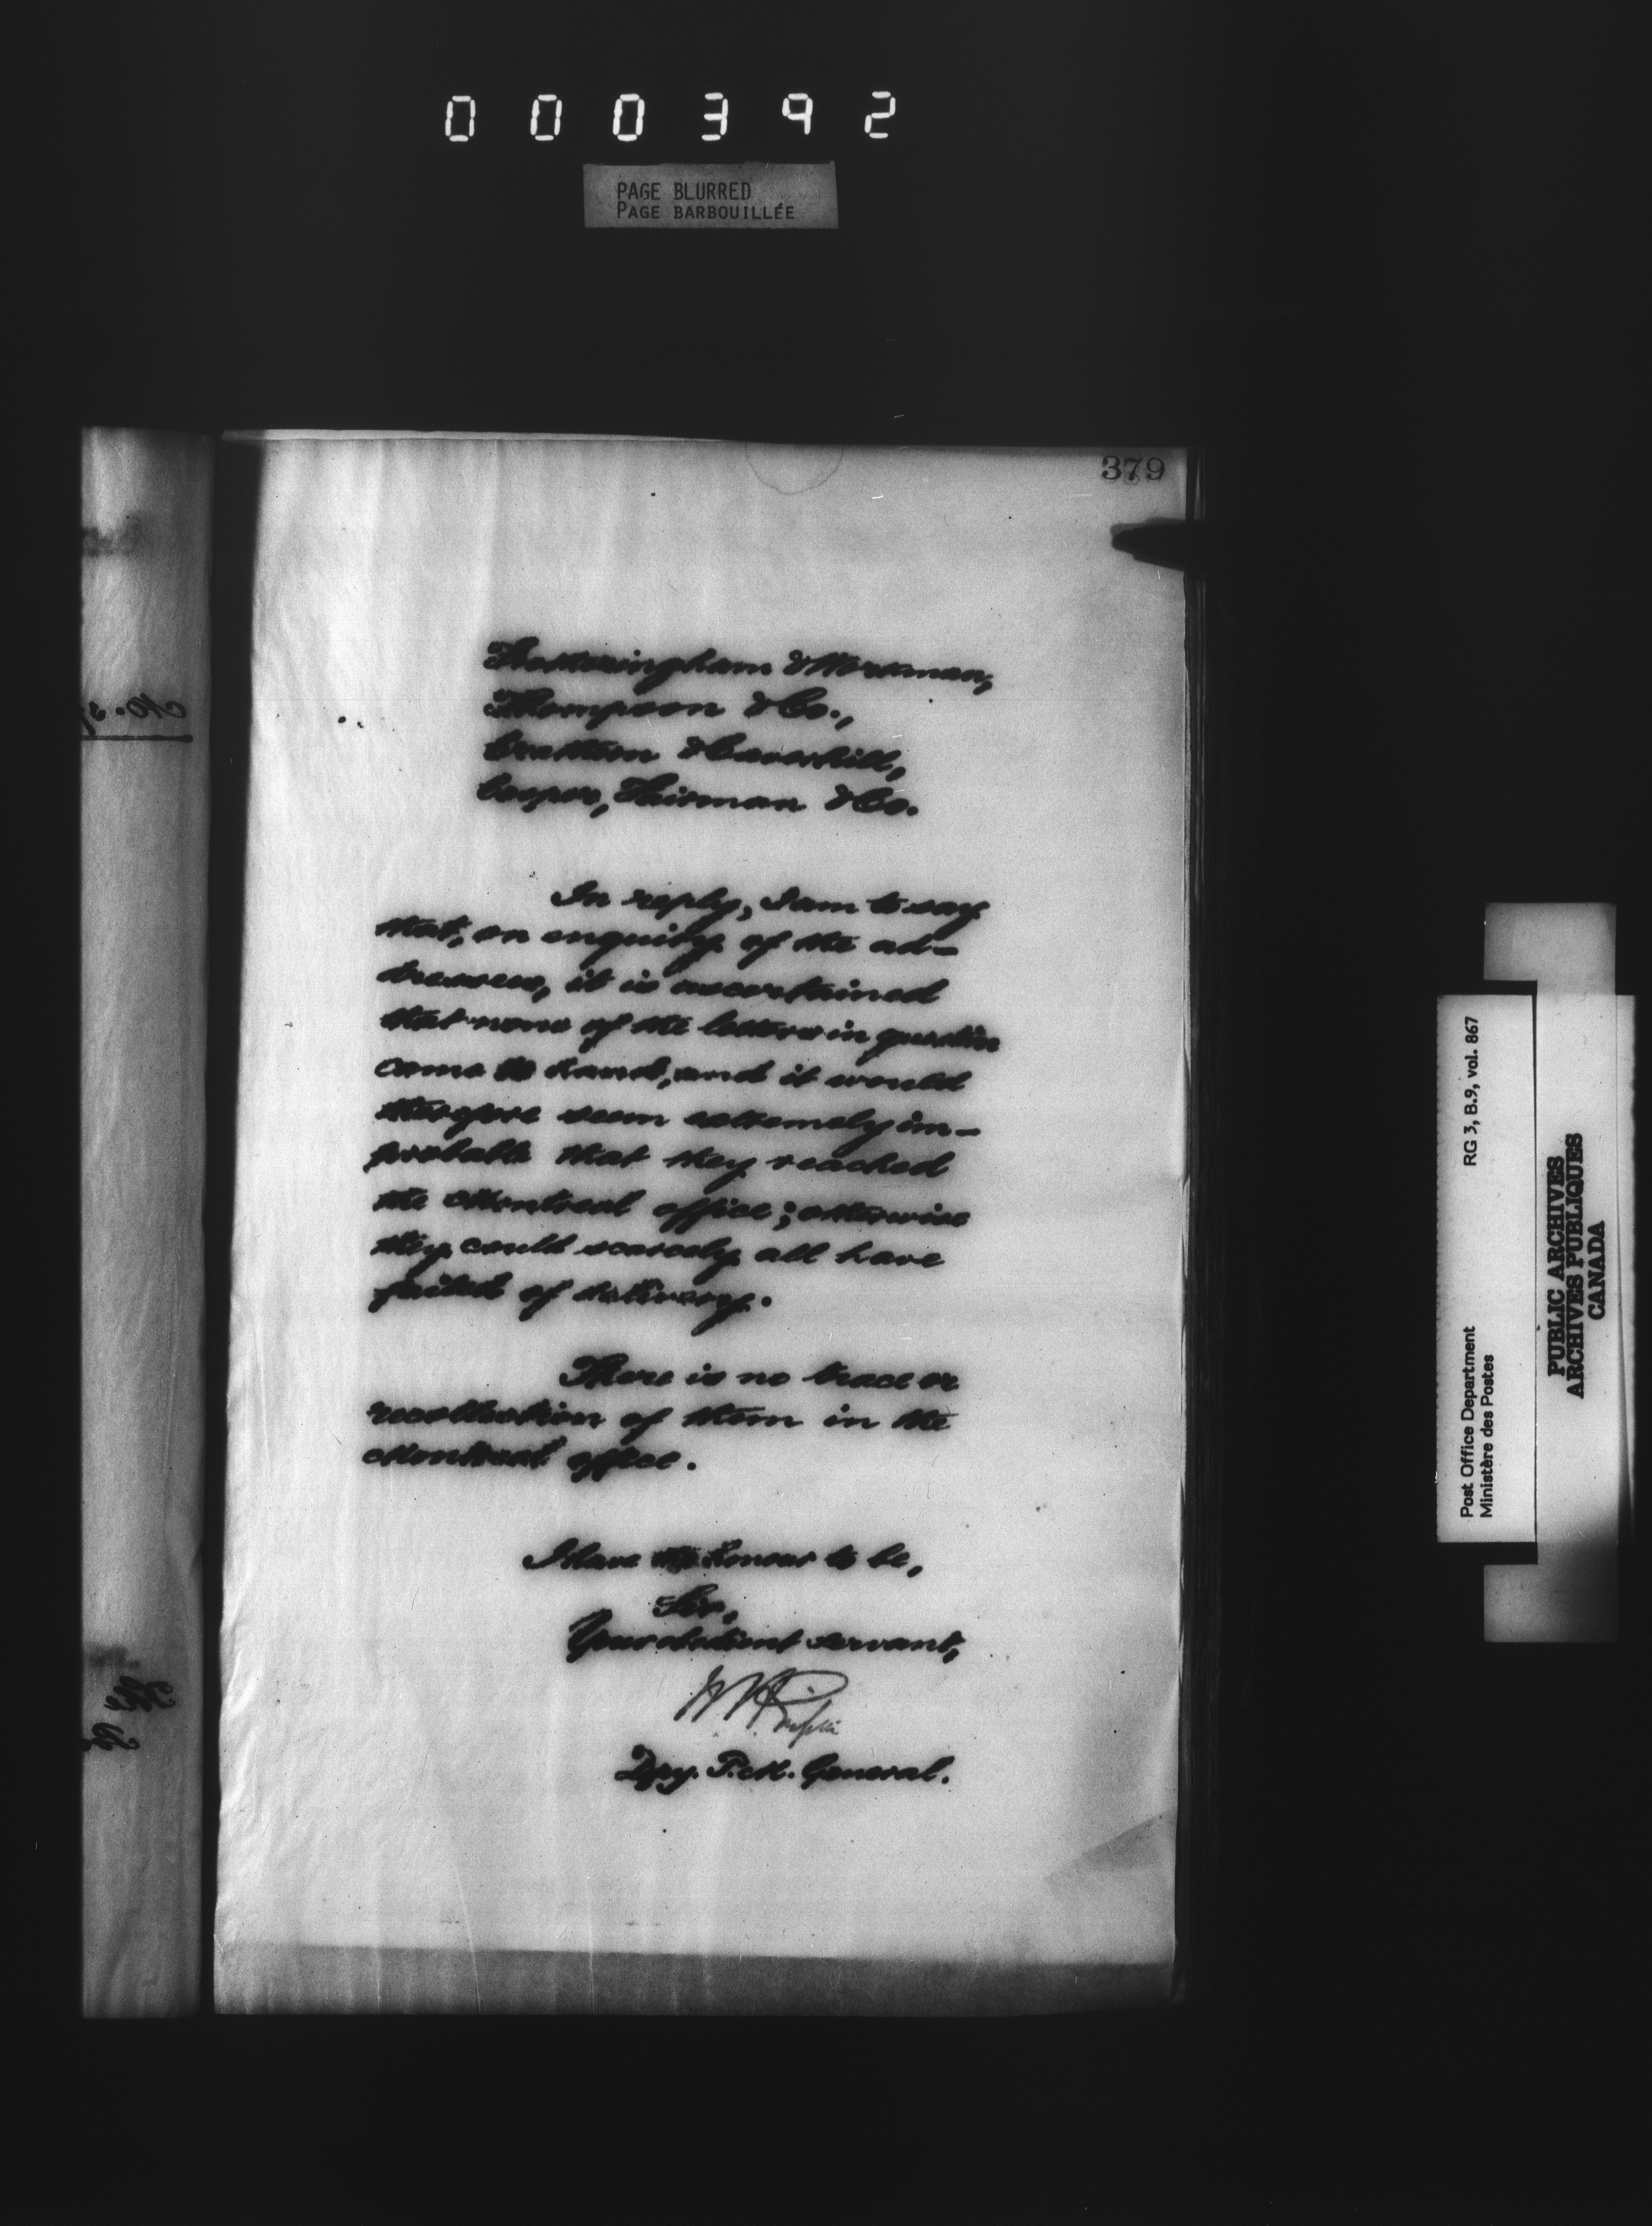 000392
PAGE BLURRED
PAGE BARBOUILLÉE
379
Frothingham & Workman,
Thompson & Co.,
Crathern & Caverhill,
Cooper, Fairman & Co.
In reply, I am to say
that, on enquiry of the ad-
dressees, it is ascertained
that none of the letters in question
came to hand, and it would
therefore seem extremely im-
probable that they reached
the Montreal office; otherwise
they could scarcely all have
failed of delivery.
There is no trace or
recollection of them in the
Montreal office.
I have the honour to be,
Sir,
Your obedient servant,
Dpy. P.M. General.
Post Office Department
Ministère des Postes
RG 3, B.9, vol. 867
PUBLIC ARCHIVES
ARCHIVES PUBLIQUES
CANADA